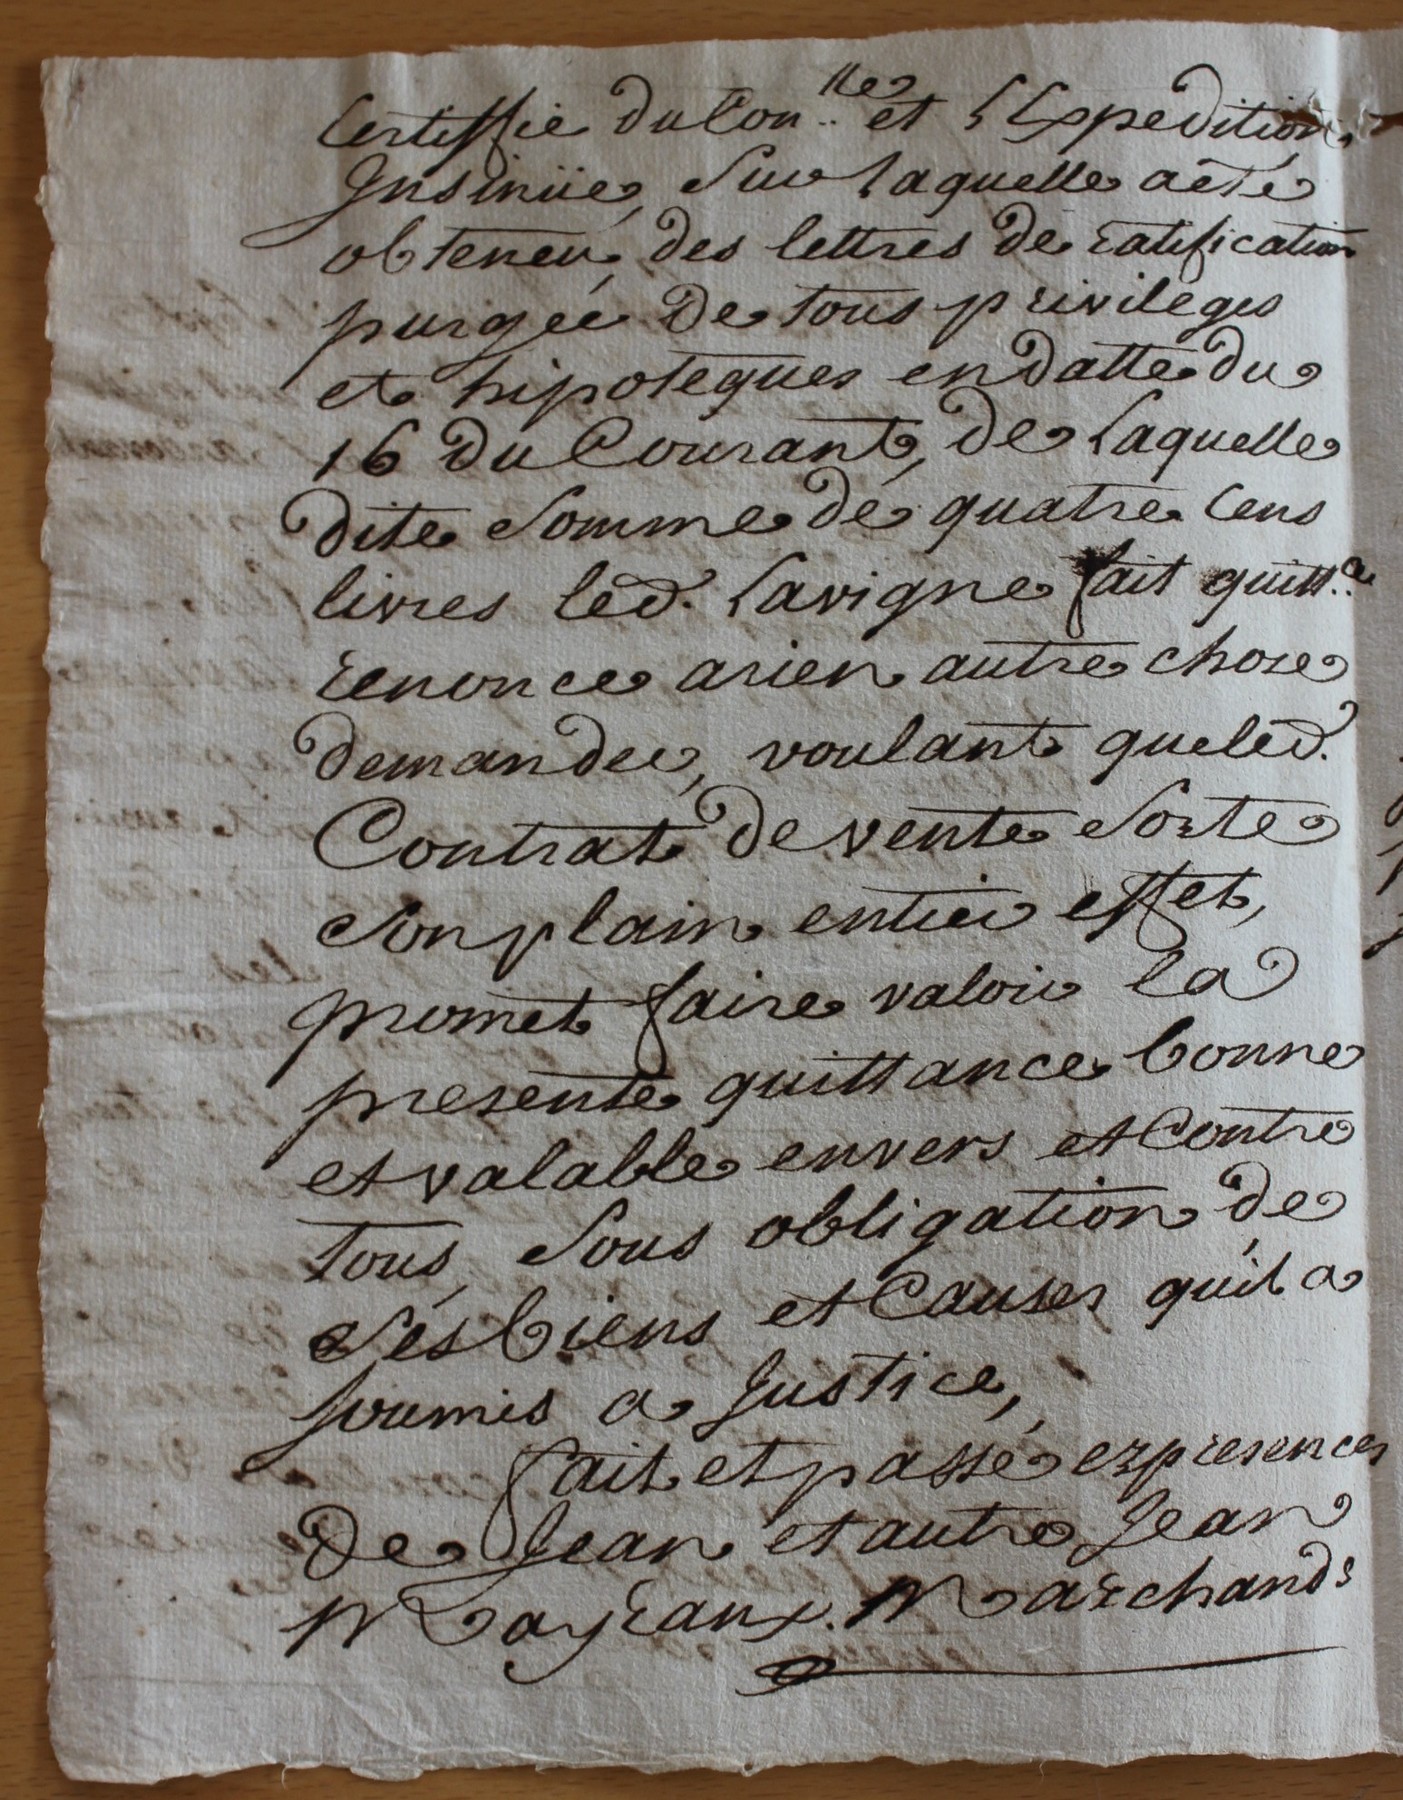 Certiffie du Con..lle et l Expédition,
Insinüée, sur laquelle a été
obteneu, des lettres de ratification
purgée de tous privileges
et hipoteques en datte du
16 du Courant, de laquelle
dite somme de quatre cens
livres led. Lavigne fait quitt.ce
renonce a rien autre chose
demander, voulant que led.
Contrat de vente sorte
son plain entier effet,
promet faire valoir la
presente quittance bonne
et valable envers et Contre
tous, sous obligation de
ses biens et Causes qu'il a
soumis a Justice,
fait et passé ez presences
de Jean et autre Jean
Mayeaux. Marchands